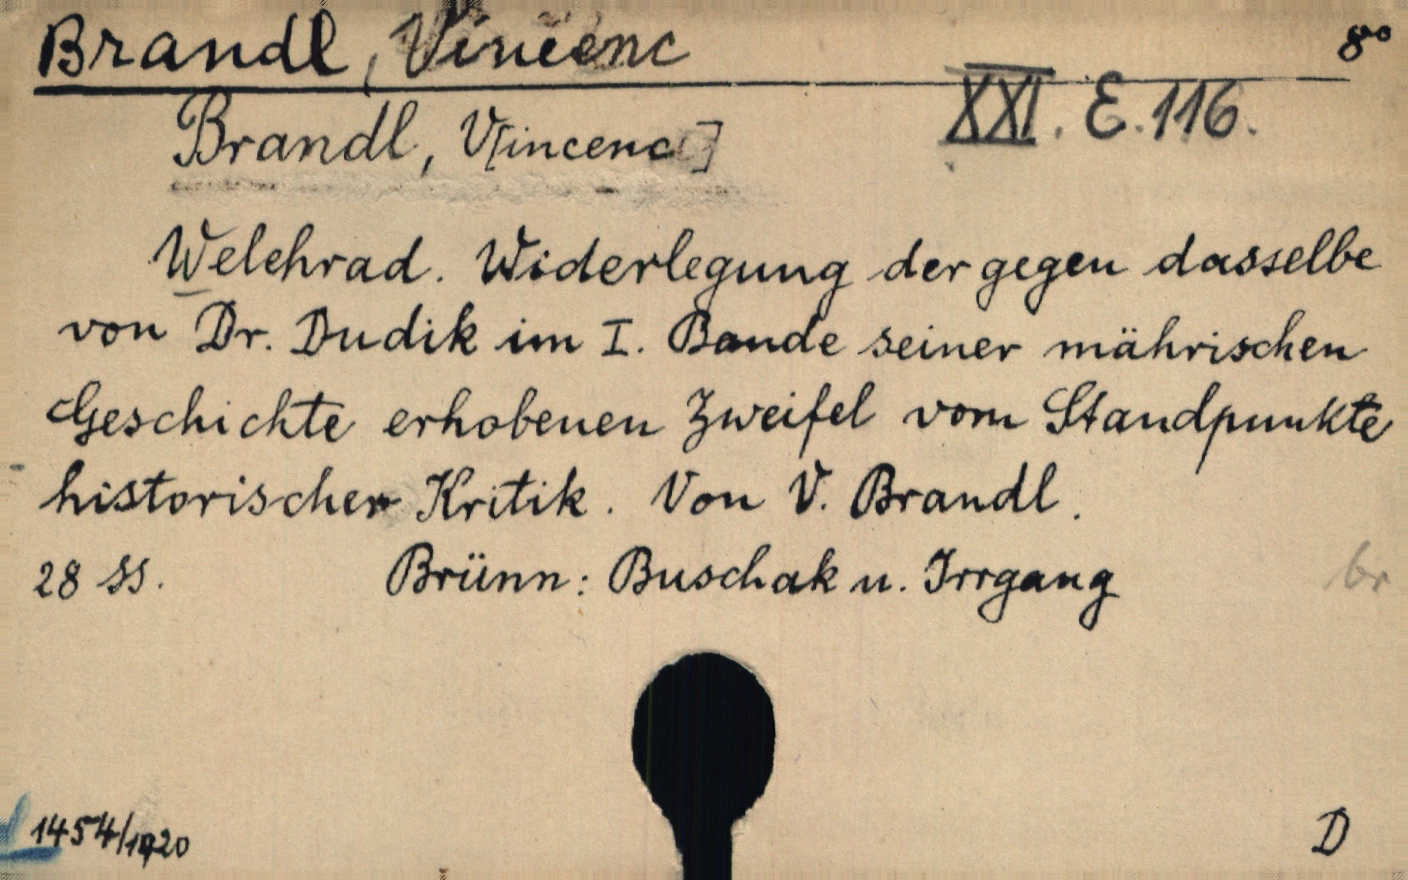 Brandl, Vincenc 8°
XXI. E. 116.
Brandl, V[incenc]
Welehrad. Widerlegung der gegen dasselbe
von Dr. Dudik im I. Bande seiner mährischen
Geschichte erhobenen Zweifel vom Standpunkte
historischer Kritik. Von V. Brandl.
28 SS. Brünn: Buschak u. Irrgang
br
1454/1920
D